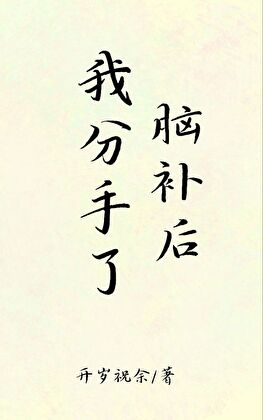 脑补后
我分手了
开岁祝余/著